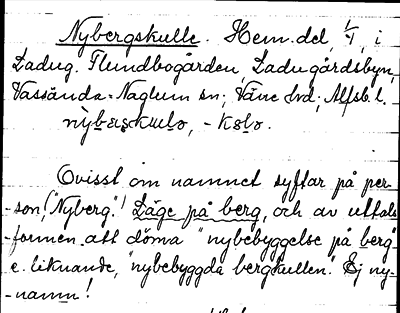 Nybergskulle. Hem.del, 1/4, i
Ladug. Flundbogården, Ladugårdsbyn,
Vassända-Naglum sn; Väne hd; Älfsb. l.
Ovisst om namnet syftar på per-
-son, "Nyberg"! Läge på berg, och av uttals-
-formen att döma "nybebyggelse på berg"
e. liknande, "nybebyggda bergkullen". Ej ny-
-namn!